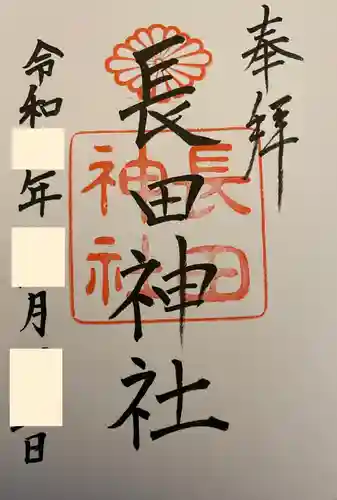 奉拝
長田神社
長田
神社
令和 年 月 日